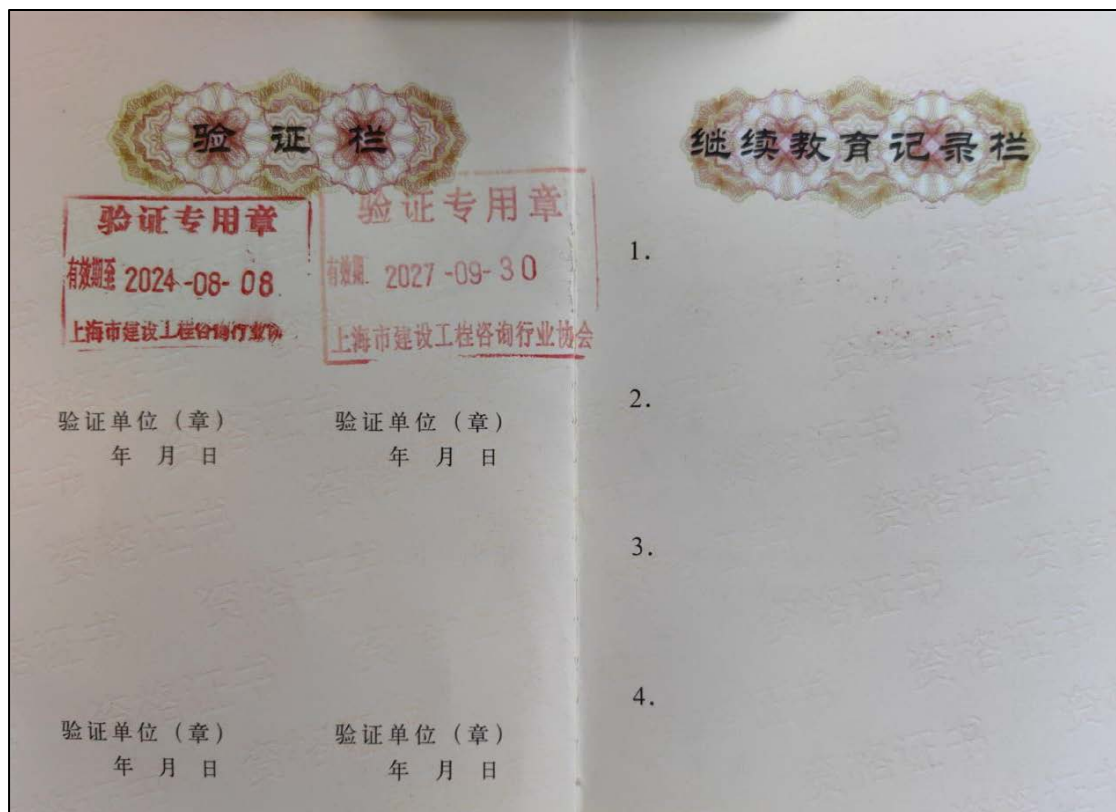 验证栏
验证专用章
有效期至 2024-08-08
上海市建设工程咨询行业协
验证专用章
有效期 2027-09-30
上海市建设工程咨询行业协会
验证单位（章）
年 月 日
验证单位（章）
年 月 日
验证单位（章）
年 月 日
验证单位（章）
年 月 日
继续教育记录栏
1.
2.
3.
4.
资格证书